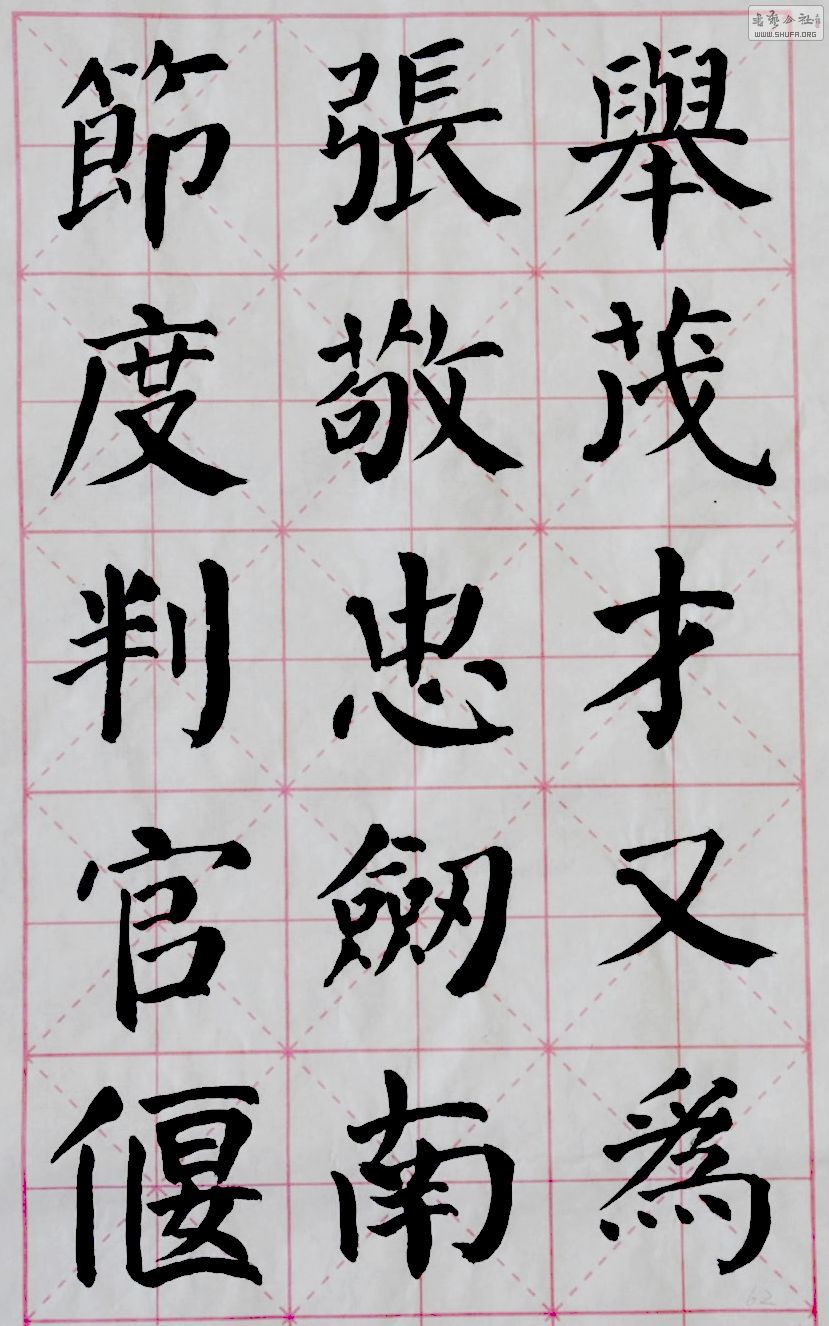 舉茂才又爲
張敬忠劒南
節度判官偃
書藝公社
WWW.SHUFA.ORG
62